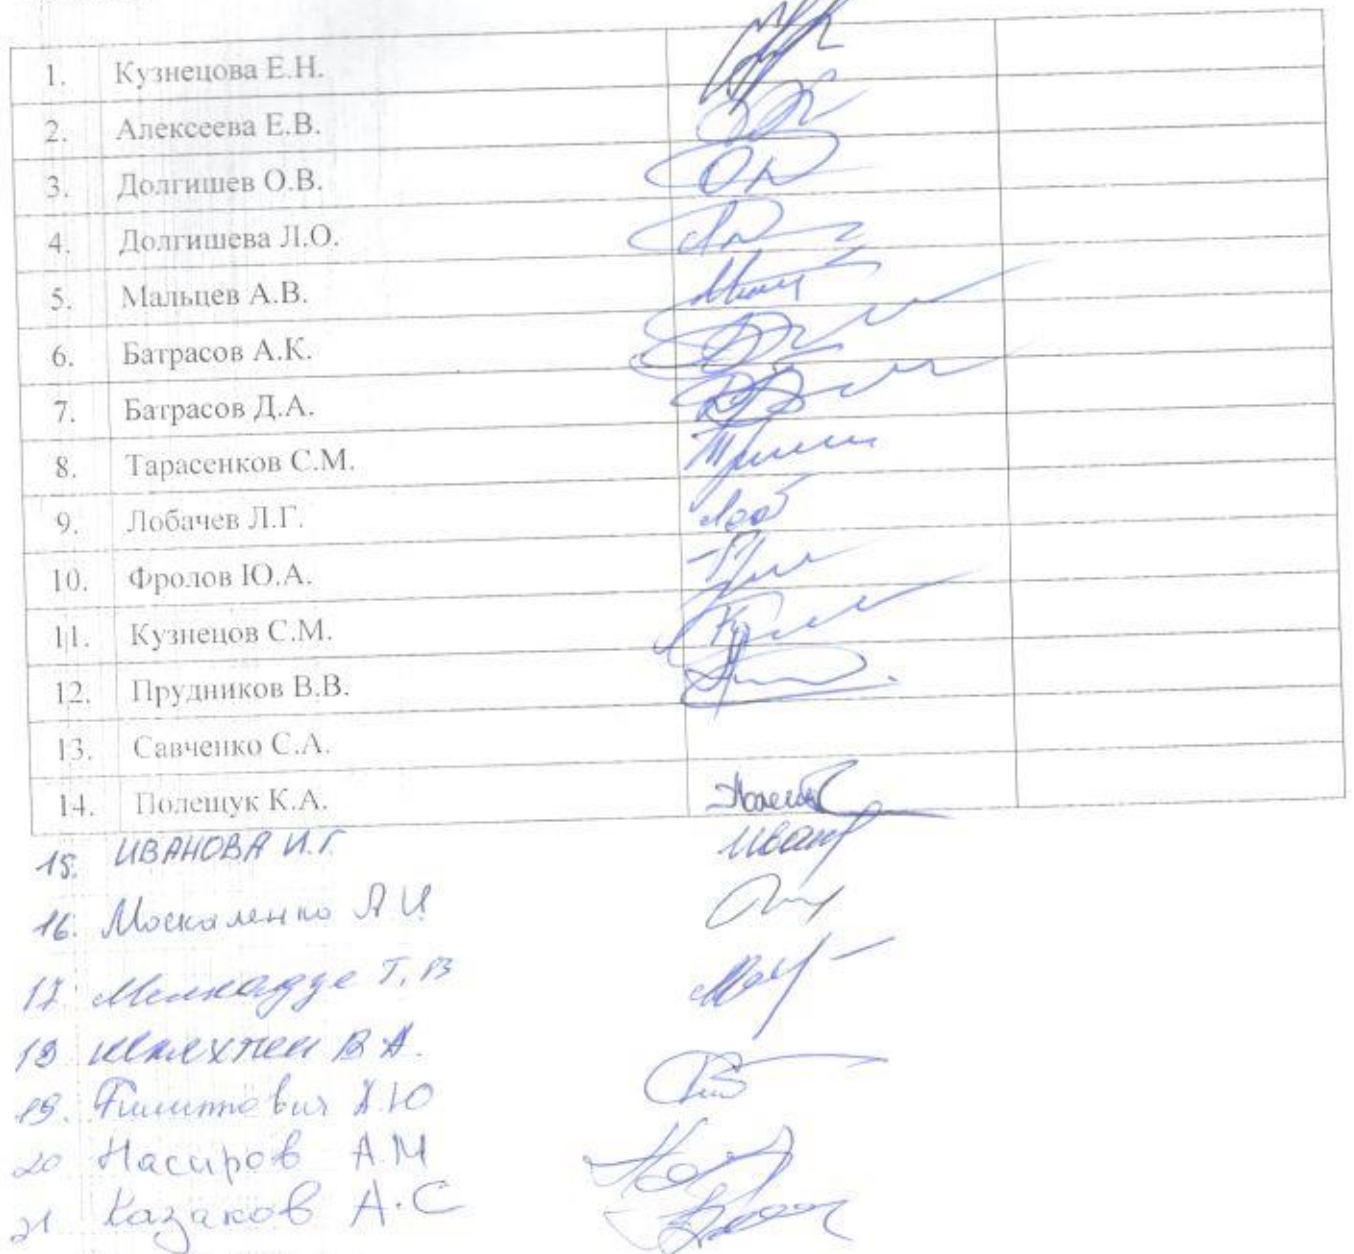 1. Кузнецова Е.Н.
2. Алексеева Е.В.
3. Долгишев О.В.
4. Долгишева Л.О.
5. Мальцев А.В.
6. Батрасов А.К.
7. Батрасов Д.А.
8. Тарасенков С.М.
9. Лобачев Л.Г.
10. Фролов Ю.А.
11. Кузнецов С.М.
12. Прудников В.В.
13. Савченко С.А.
14. Полещук К.А.
15. ИВАНОВА И.Г. Иван
16. Москаленко А И
17. Т.В
18 В.А.
19. Филиппович А.Ю
20 Насиров А.М
21 Казаков А.С